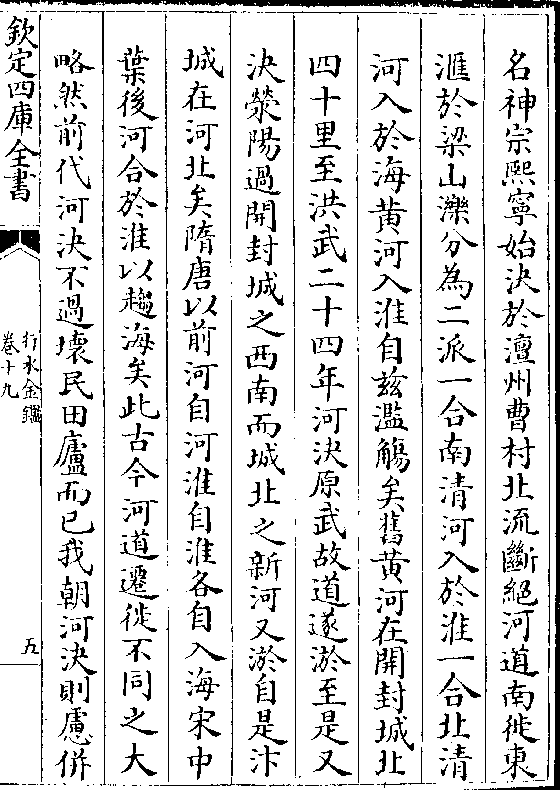 名神宗熙寧始決於澶州曹村北流斷絕河道南徙東
滙於梁山濼分為二派一合南清河入於淮一合北清
河入於海黄河入淮自兹濫觴矣舊黄河在開封城北
四十里至洪武二十四年河決原武故道遂淤至是又
決滎陽過開封城之西南而城北之新河又淤自是汴
城在河北矣隋唐以前河自河淮自淮各自入海宋中
葉後河合於淮以趨海矣此古今河道遷徙不同之大
略然前代河決不過壞民田廬而已我朝河決則慮併
欽定四庫全書
行水金鑑
卷十九
五